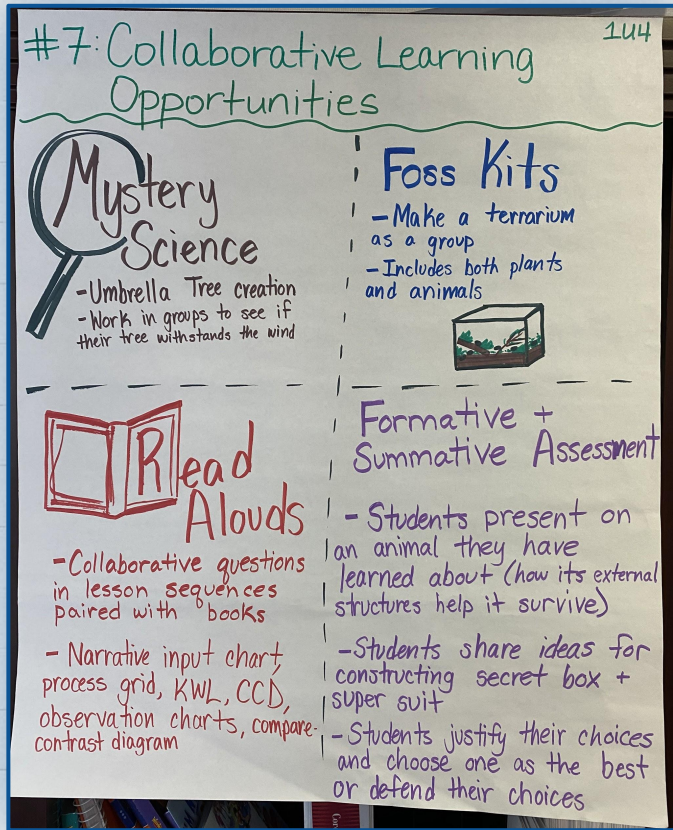 1U4
#7: Collaborative Learning
Opportunities
Mystery
Science
-Umbrella Tree creation
-Work in groups to see if
their tree withstands the wind
Foss Kits
-Make a terrarium
as a group
-Includes both plants
and animals
Read
Alouds
-Collaborative questions
in lesson sequences
paired with books
- Narrative input chart,
process grid, KWL, CCD,
observation charts, compare-
contrast diagram
Formative +
Summative Assessment
- Students present on
an animal they have
learned about (how its external
structures help it survive)
-Students share ideas for
constructing secret box +
super suit
-Students justify their choices
and choose one as the best
or defend their choices